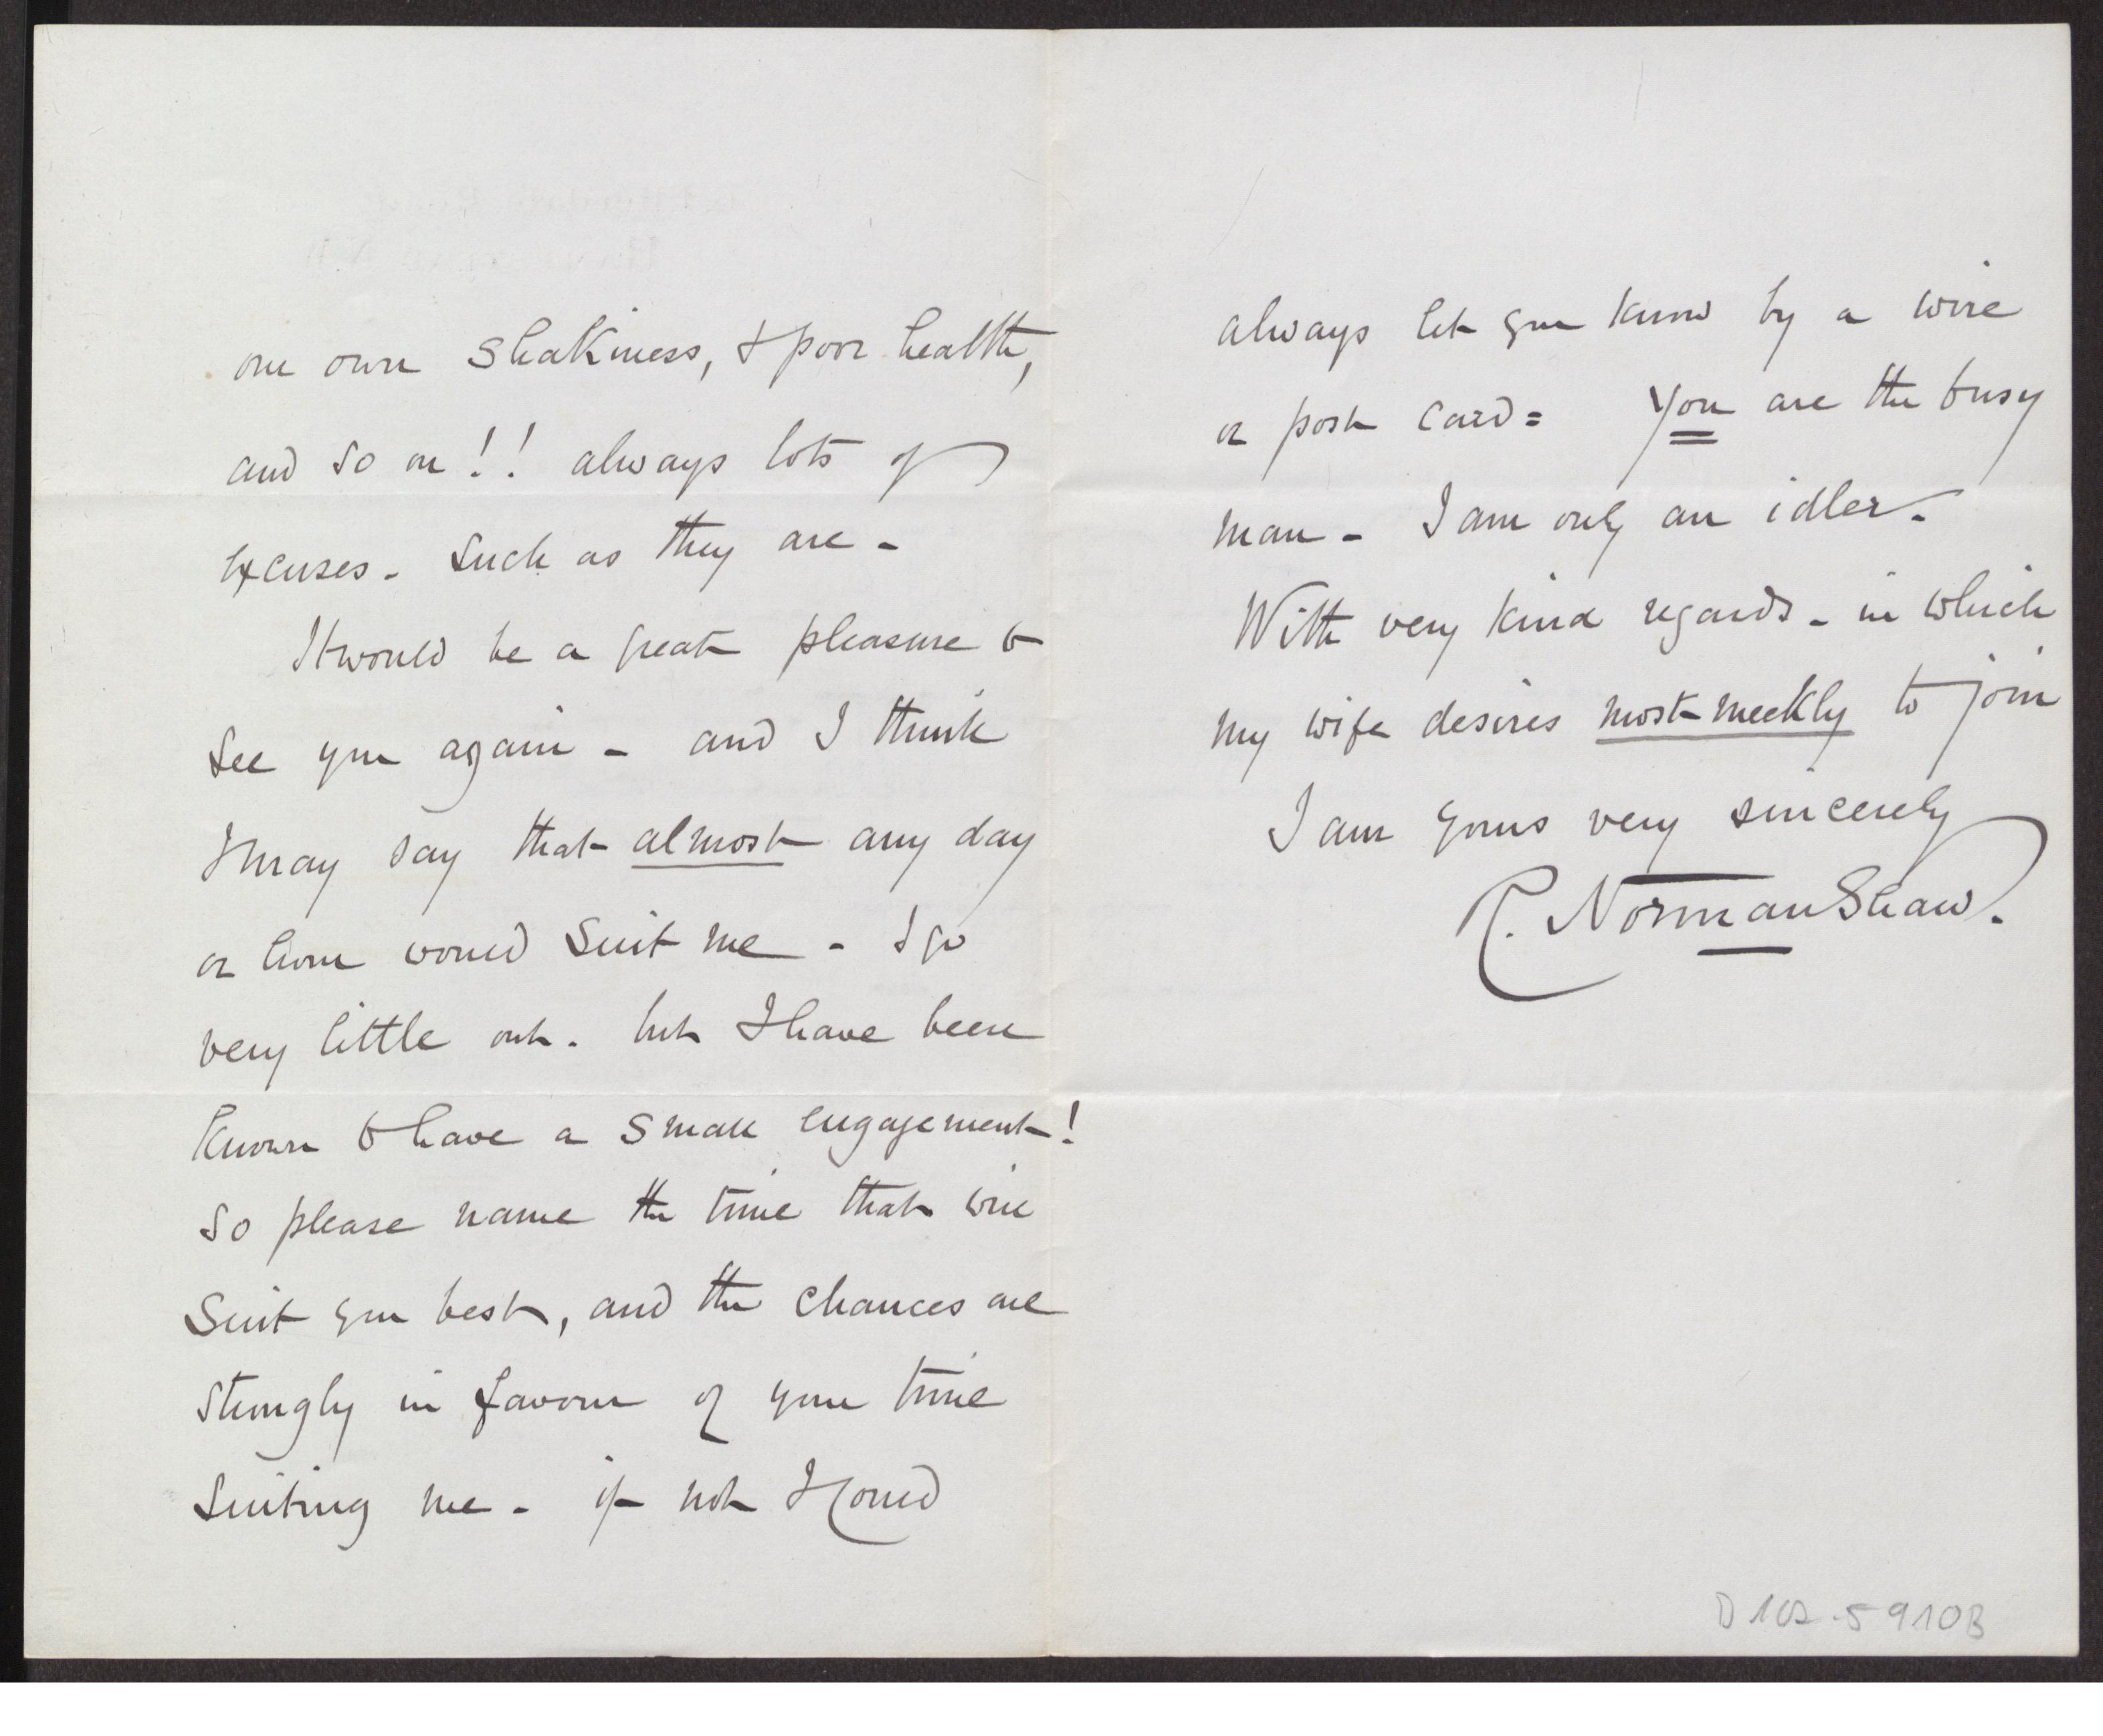 our own shakiness, & poor health,
and so on!! always lots of
excuses - such as they are -
It would be a great pleasure to
see you again - and I think
I may say that almost any day
or hour would suit me - I go
very little out. but I have been
known to have a small engagement!
So please name the time that will
suit you best, and the chances are
strongly in favour of your time
suiting me - if not I could
always let you know by a wire
or post card = You are the busy
man - I am only an idler -
With very kind regards - in which
my wife desires most meekly to join
I am yours very sincerely
R. Norman Shaw.
D 102-5910B